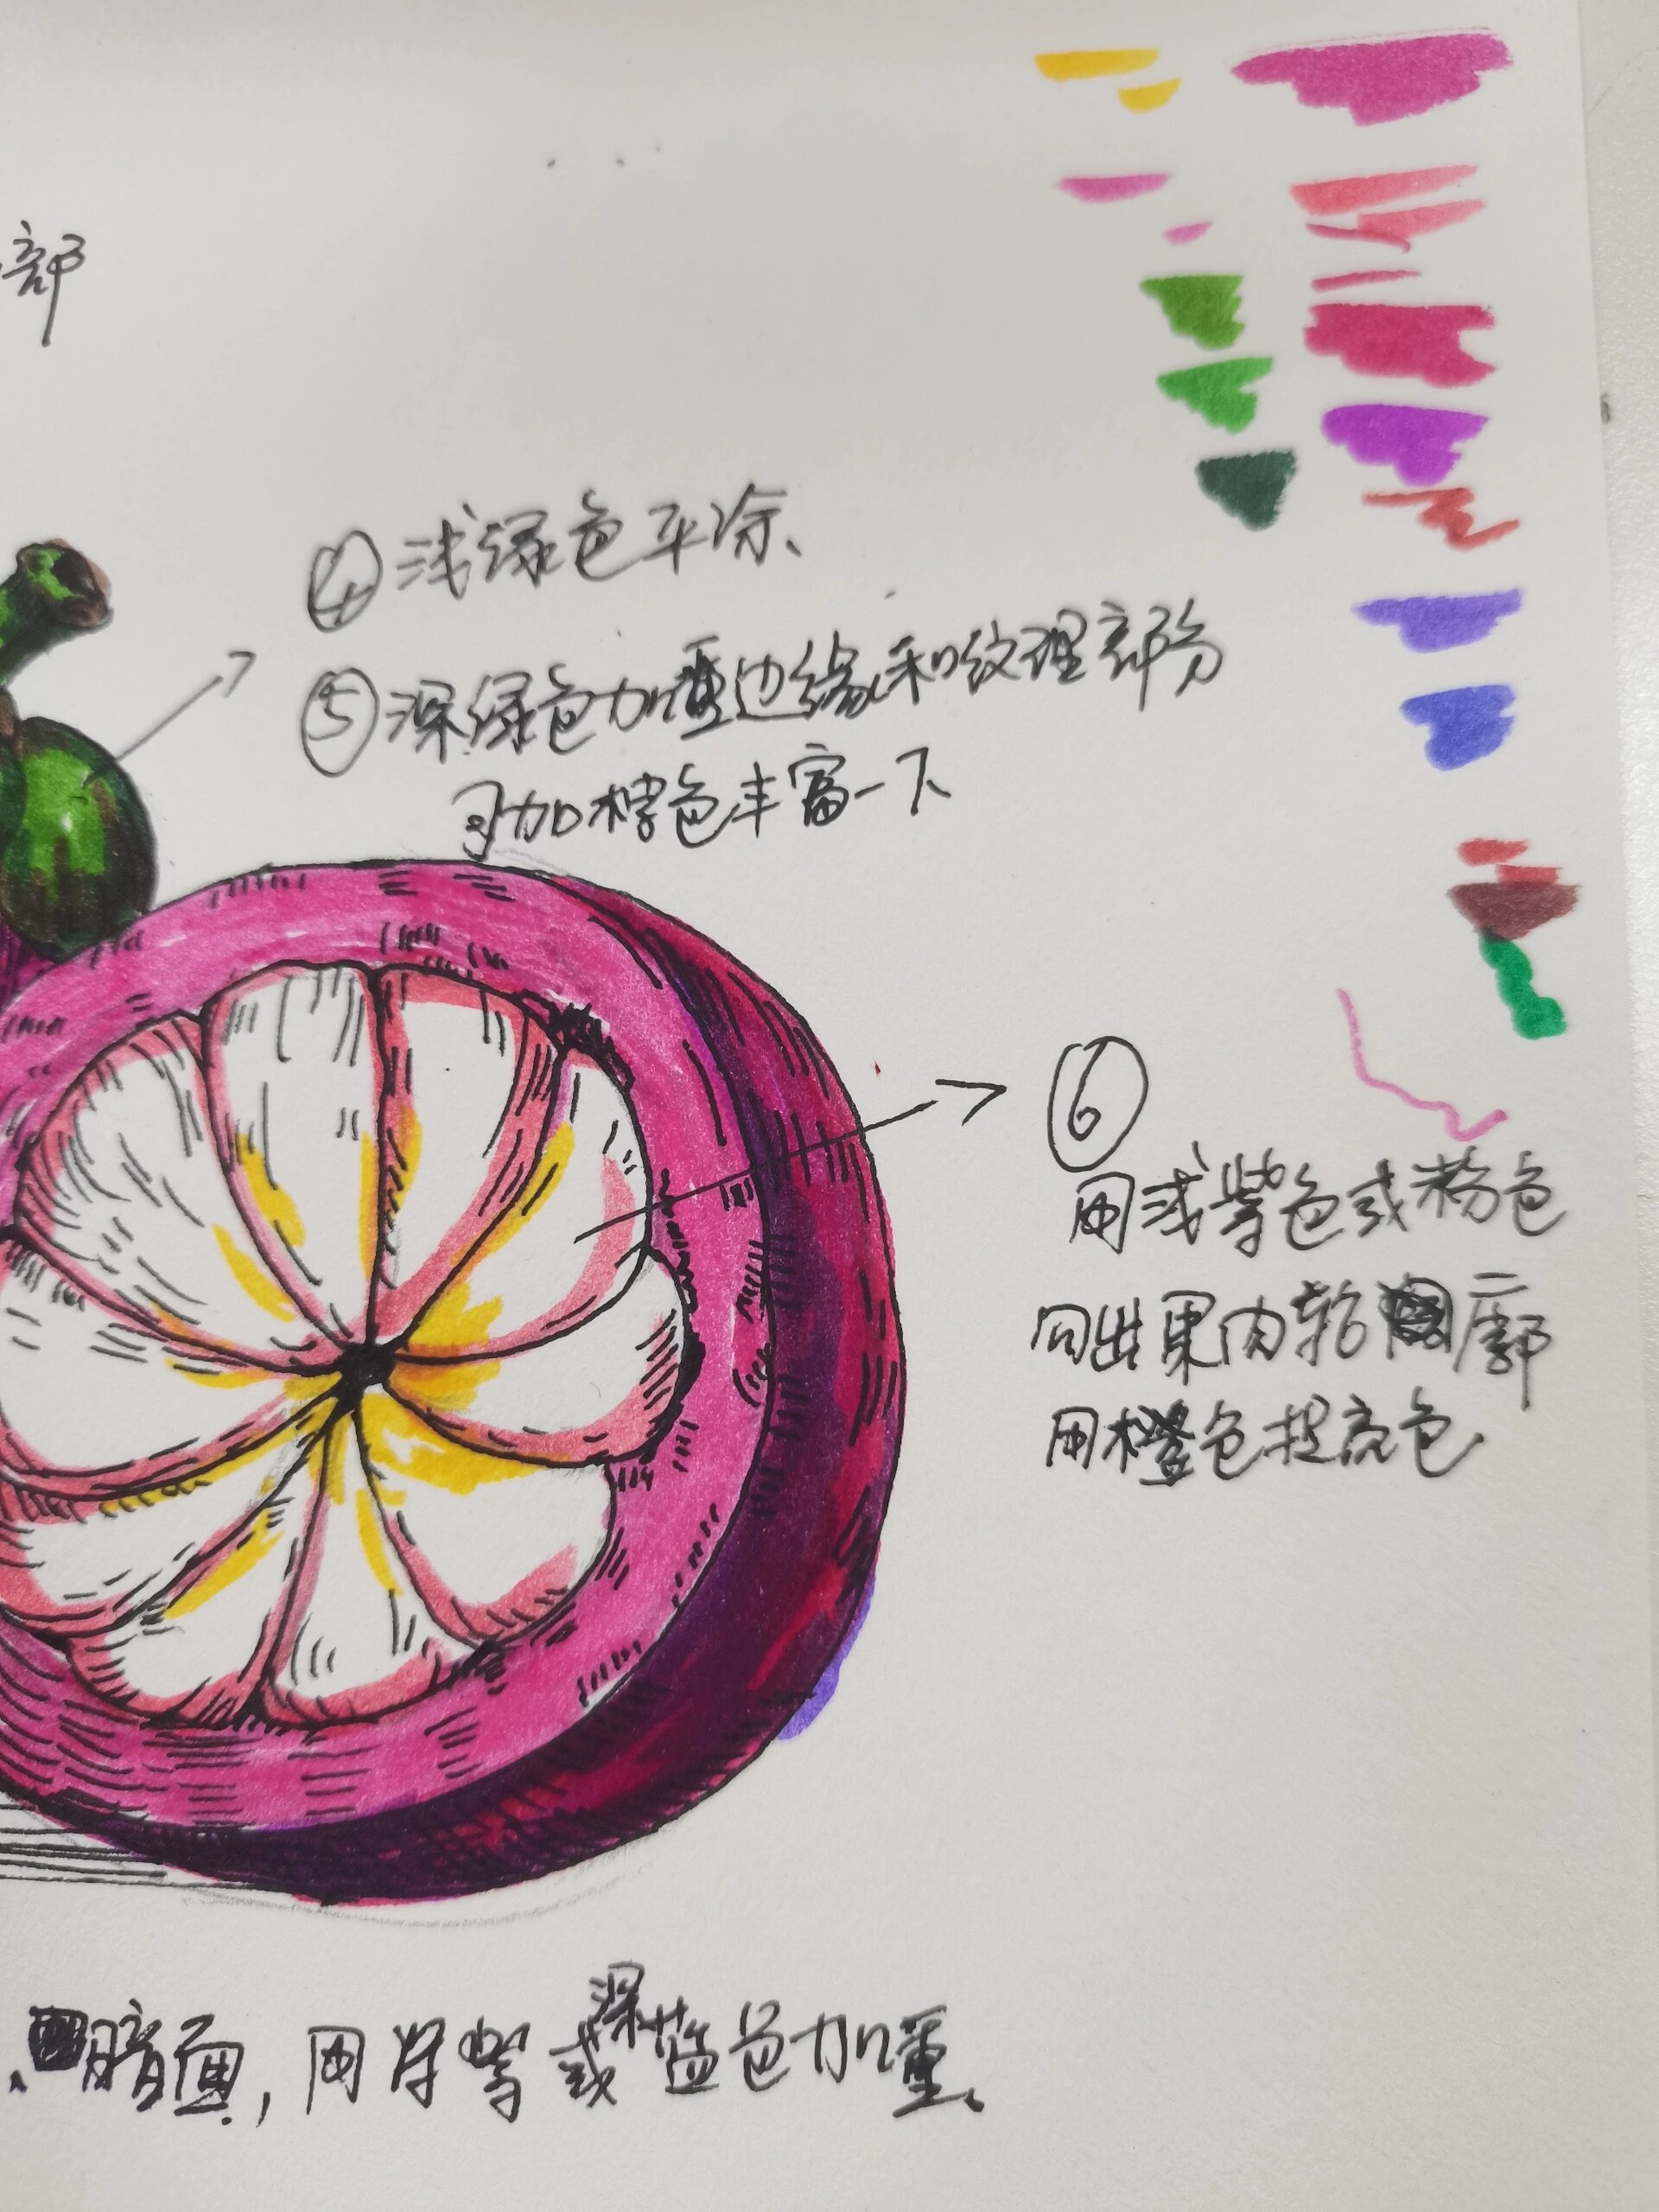 部
④浅绿色平涂、
⑤深绿色加重边缘和纹理部分
可加橙色丰富一下
⑥
用浅紫色或粉色
勾出果肉轮廓
用橙色提亮色
、暗面,用深紫或深蓝色加重、